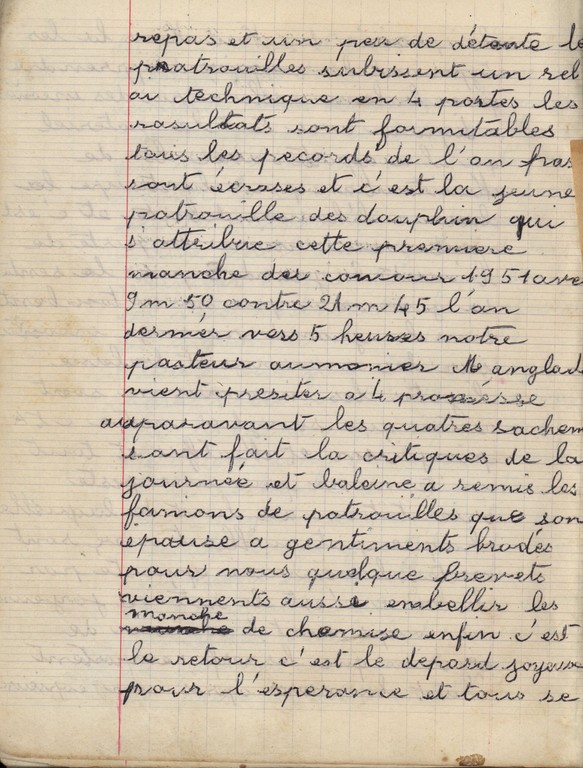 repas et un peu de détente le
patrouilles subissent un rel
ai technique en 4 postes les
rasultats sont formitables
tous les records de l'an pas
sont écrasés et c'est la jeune
patrouille des dauphin qui
s'attribue cette premiere
manche du concour 1951 ave
9 m 50 contre 21 m 45 l'an
dernier vers 5 heures notre
pasteur aumonier M anglad
vient presiter a 4 promesse
auparavant les quatres sachem
sont fait la critiques de la
journée et baleine a remis les
fanions de patrouilles que son
épouse a gentiments brodés
pour nous quelque brevets
viennents aussi embellir les
manche de chemise enfin c'est
le retour c'est le depard joyeuse
pour l'esperance et tous se